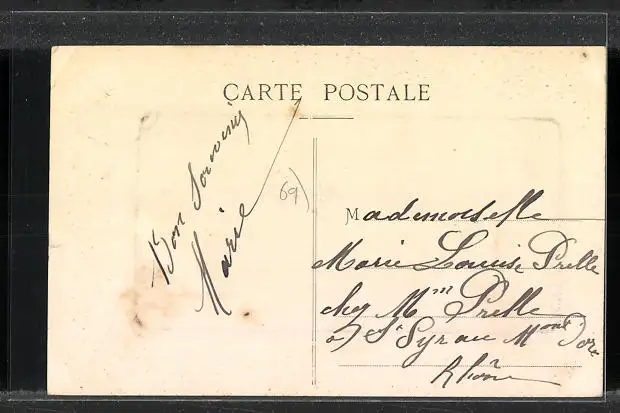 CARTE POSTALE
Bon Souvenir
Marie
69)
Mademoiselle
Marie Louise Prelle
chez Mme Prelle
à St Cyr au Mont Dore
Rhône